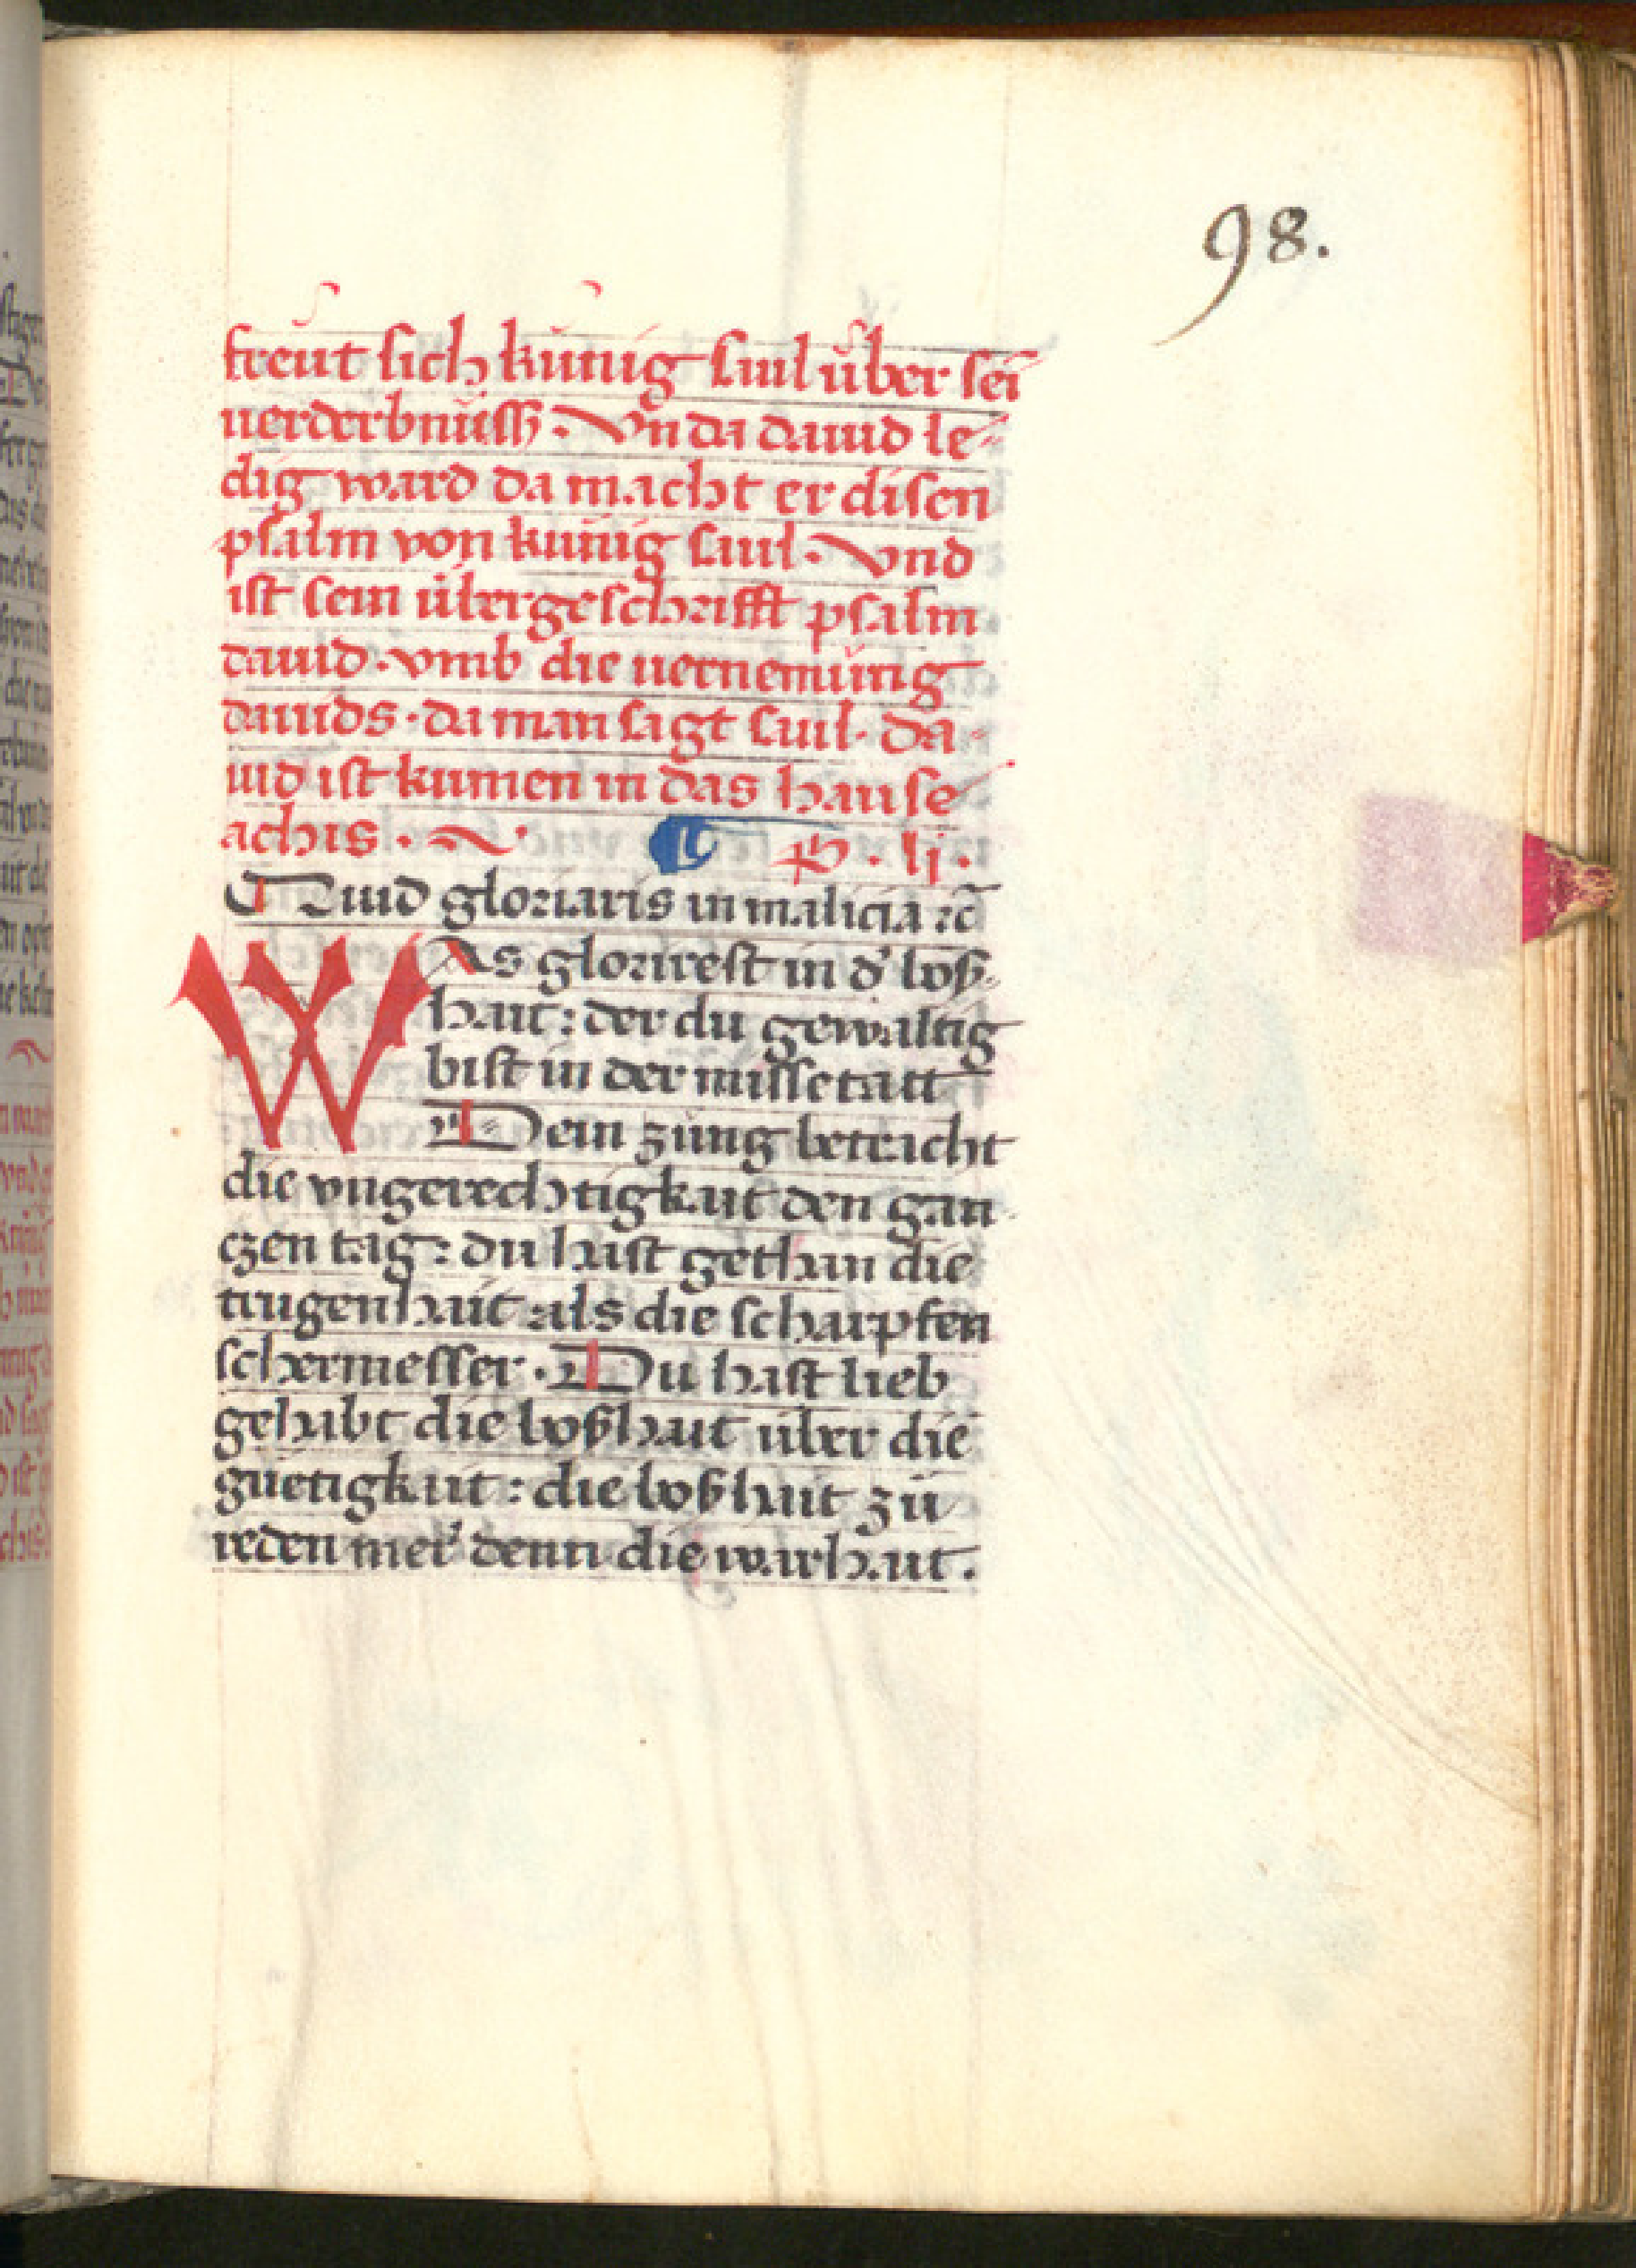 98.
freŭt sich kŭnig saul ŭber sei
uerderbnŭss. Vn da dauid le-
dig ward da macht er disen
psalm von kŭnig saul. Vnd
ist sein ŭbergeschrifft psalm
dauid. vmb die uernemŭng
dauids. da man sagt saul. da-
uid ist kumen in das hause
achis. ps. lj.
Quid gloriaris in malicia ⁊c̄
WAs glorirest in d' boß-
hait: der du gewaltig
bist in der missetatt
Dein zŭng betracht
die vngerechtigkait den gan-
czen tag: du hast gethan die
trugenhait als die scharpfen
schermesser. Du hast lieb
gehabt die boßhait ŭber die
guetigkait: die boßhait zŭ
reden mer denn die warhait.